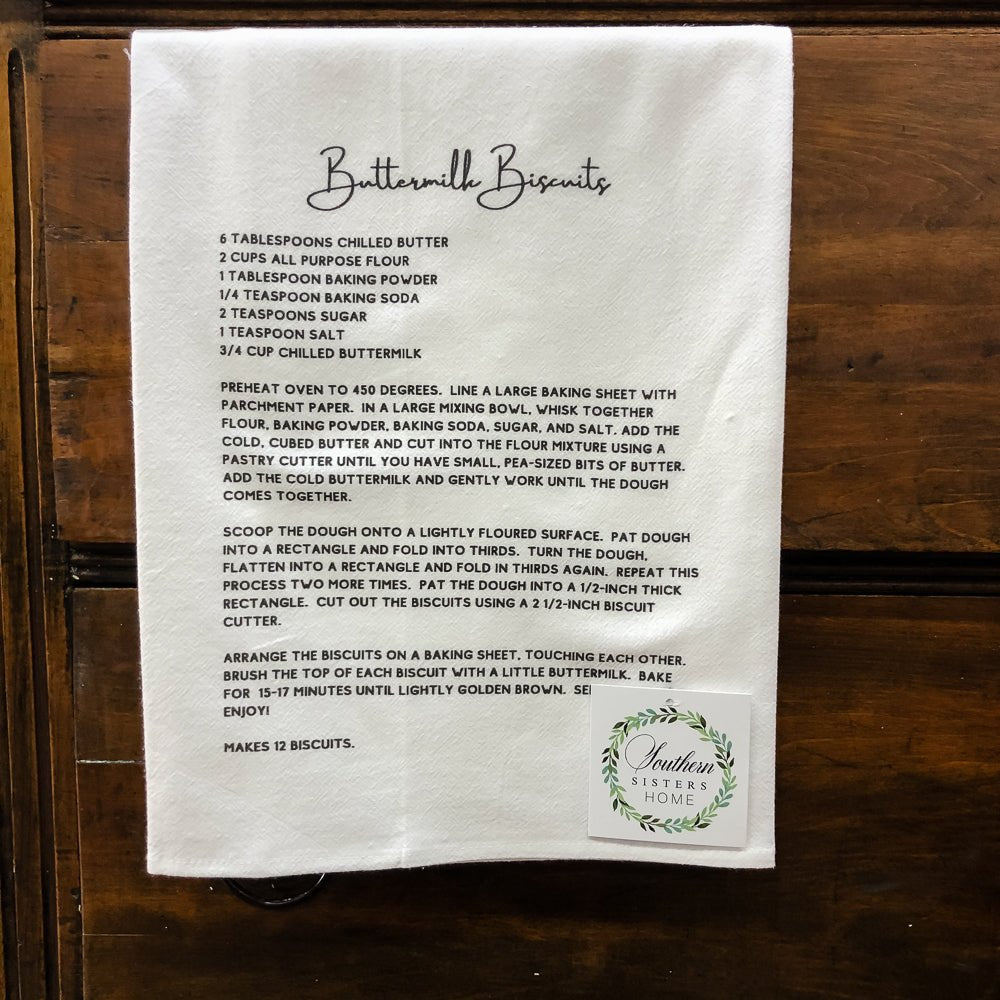 Buttermilk Biscuits
6 TABLESPOONS CHILLED BUTTER
2 CUPS ALL PURPOSE FLOUR
1 TABLESPOON BAKING POWDER
1/4 TEASPOON BAKING SODA
2 TEASPOONS SUGAR
1 TEASPOON SALT
3/4 CUP CHILLED BUTTERMILK
PREHEAT OVEN TO 450 DEGREES. LINE A LARGE BAKING SHEET WITH
PARCHMENT PAPER. IN A LARGE MIXING BOWL, WHISK TOGETHER
FLOUR, BAKING POWDER, BAKING SODA, SUGAR, AND SALT. ADD THE
COLD, CUBED BUTTER AND CUT INTO THE FLOUR MIXTURE USING A
PASTRY CUTTER UNTIL YOU HAVE SMALL, PEA-SIZED BITS OF BUTTER.
ADD THE COLD BUTTERMILK AND GENTLY WORK UNTIL THE DOUGH
COMES TOGETHER.
SCOOP THE DOUGH ONTO A LIGHTLY FLOURED SURFACE. PAT DOUGH
INTO A RECTANGLE AND FOLD INTO THIRDS. TURN THE DOUGH,
FLATTEN INTO A RECTANGLE AND FOLD IN THIRDS AGAIN. REPEAT THIS
PROCESS TWO MORE TIMES. PAT THE DOUGH INTO A 1/2-INCH THICK
RECTANGLE. CUT OUT THE BISCUITS USING A 2 1/2-INCH BISCUIT
CUTTER.
ARRANGE THE BISCUITS ON A BAKING SHEET, TOUCHING EACH OTHER.
BRUSH THE TOP OF EACH BISCUIT WITH A LITTLE BUTTERMILK. BAKE
FOR 15-17 MINUTES UNTIL LIGHTLY GOLDEN BROWN.
ENJOY!
MAKES 12 BISCUITS.
Southern
SISTERS
HOME